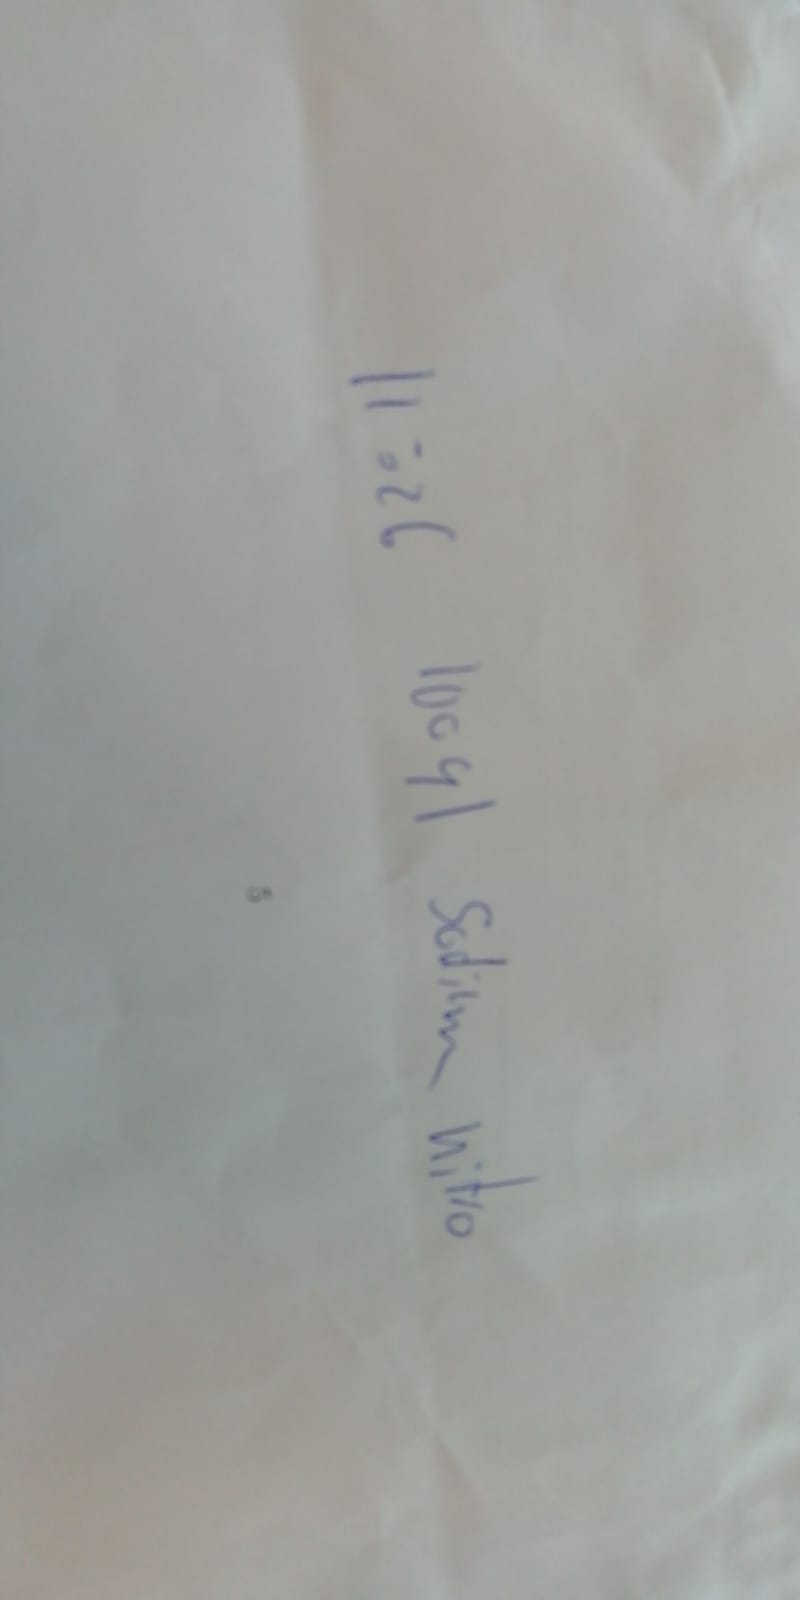 11:26 100 91 Sodium nitro
5